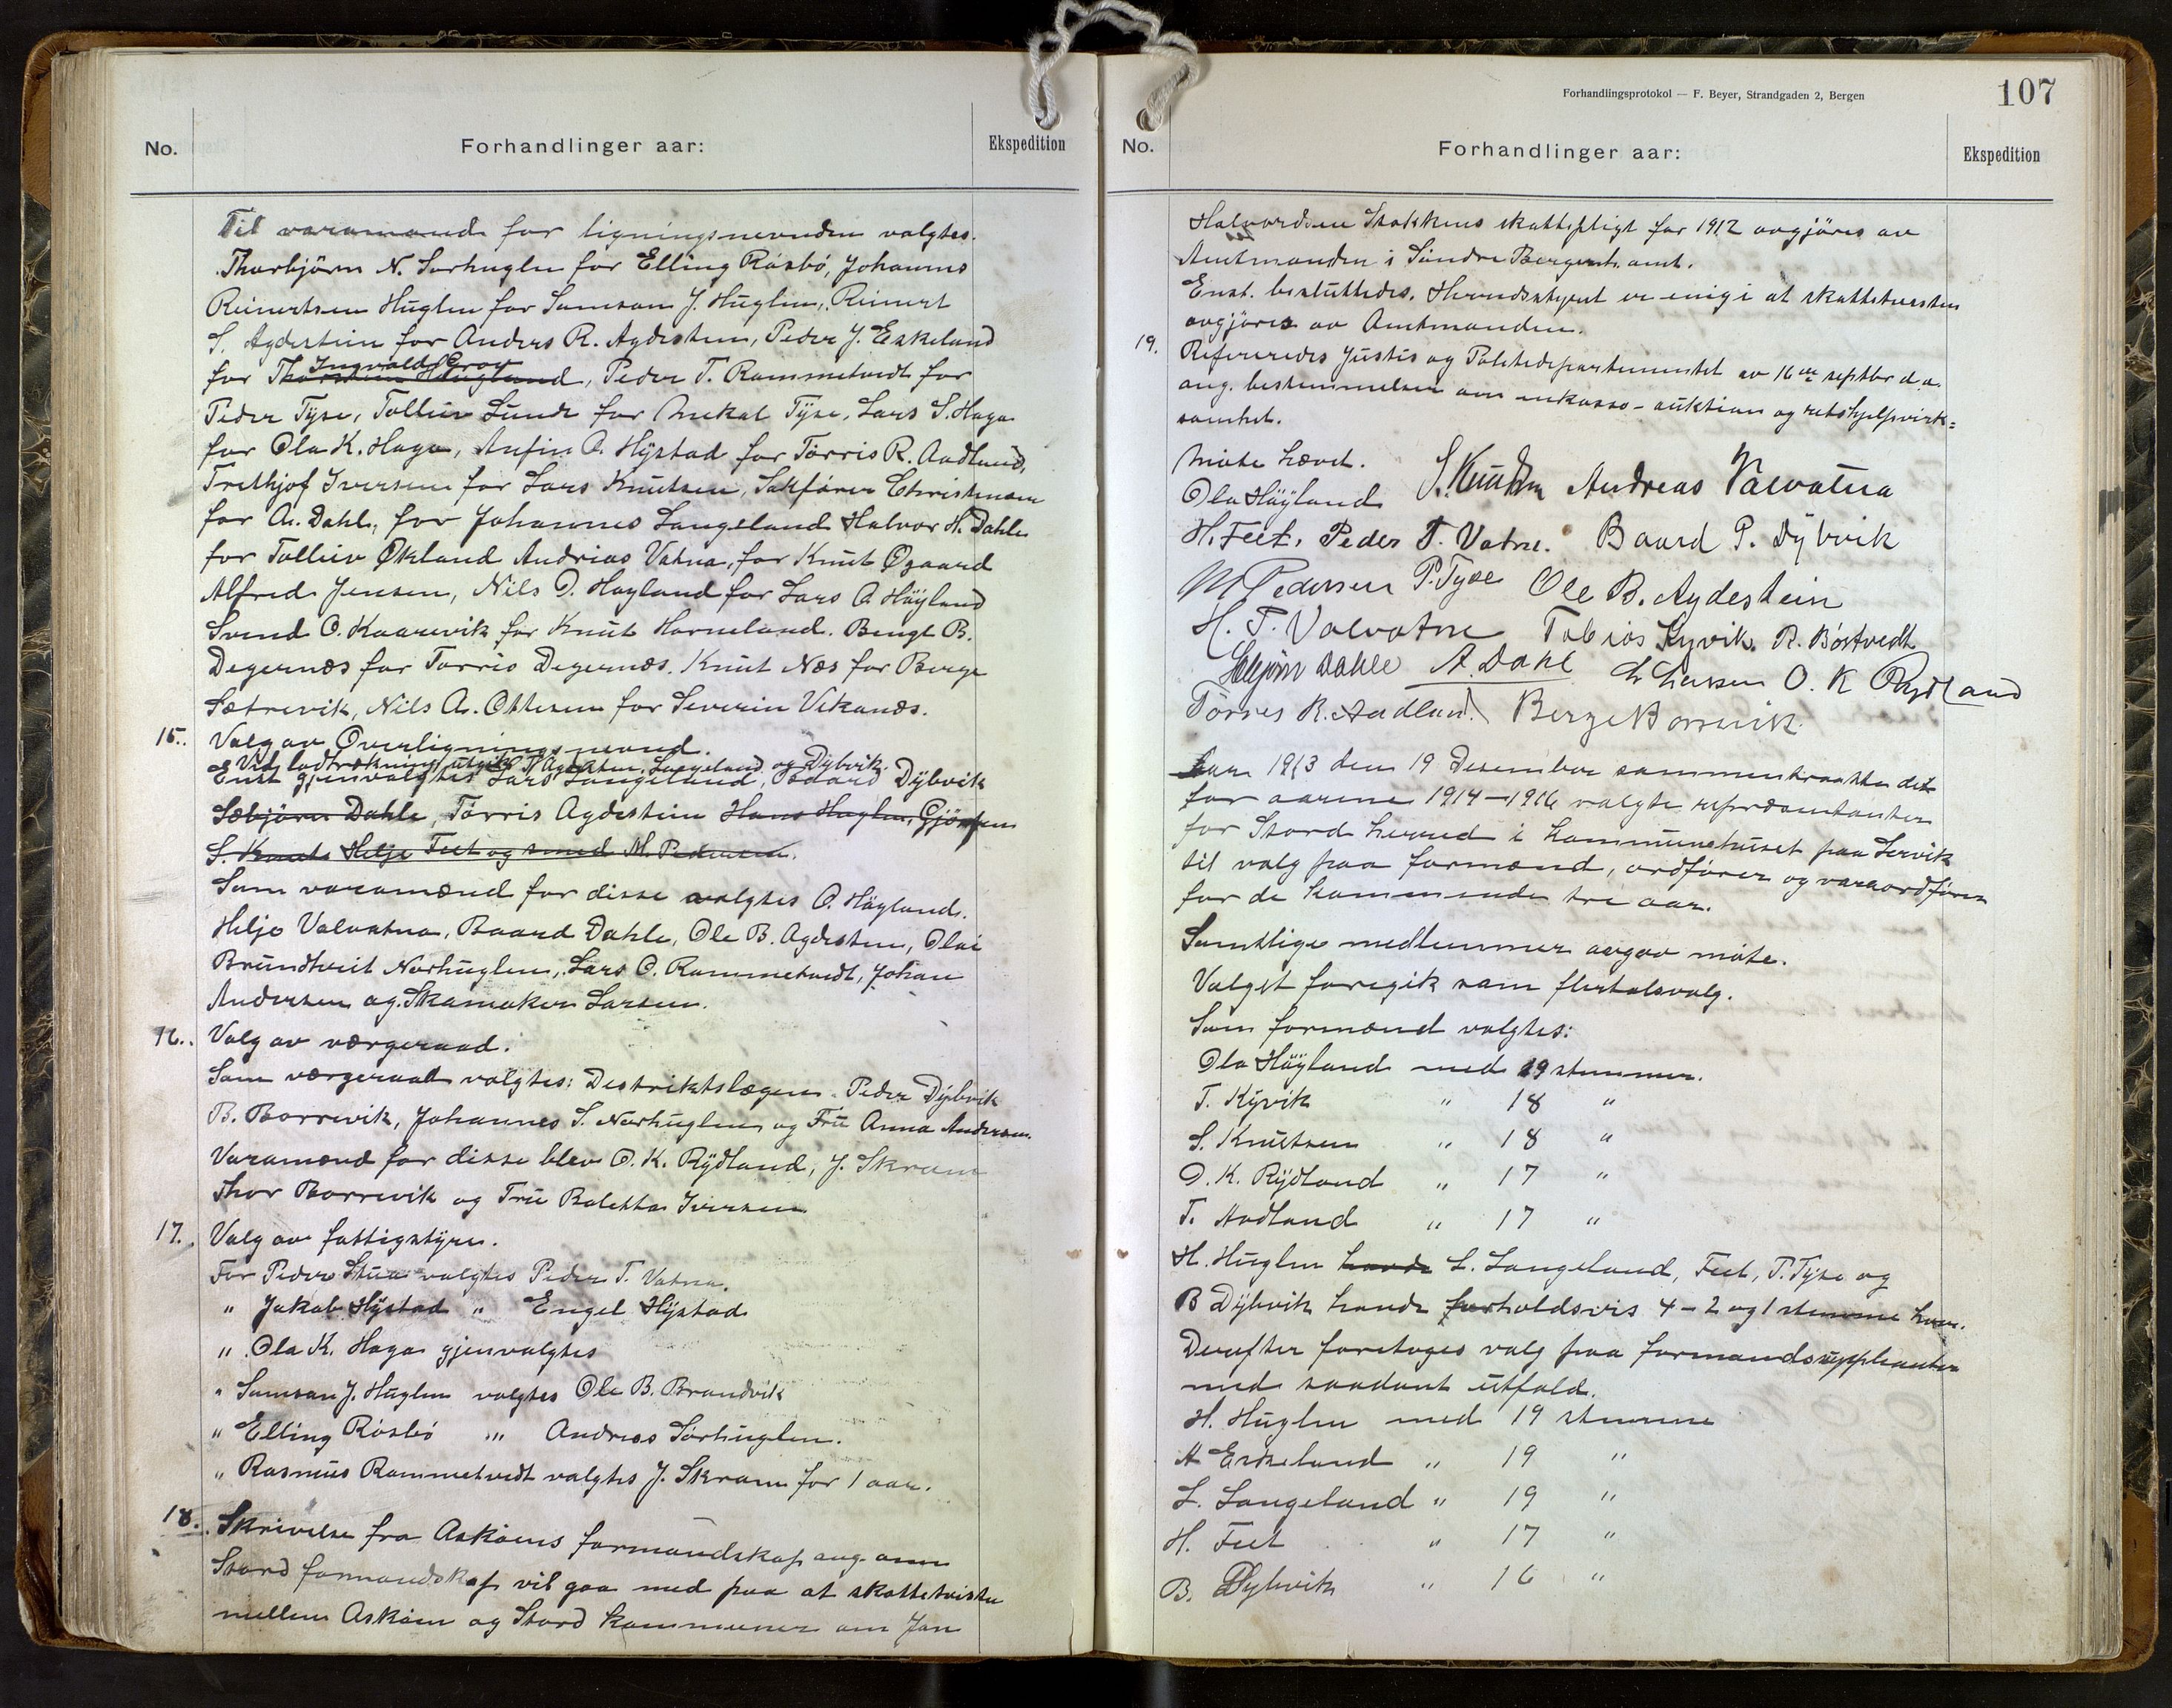 No.
Forhandlinger aar:
Ekspedition
Til varamænd for ligningsnevnden valgtes.
Thorbjörn N. Sørhuglen for Elling Røsbø, Johannes
Reinertsen Huglen for Samson J. Huglen, Reinert
S. Agdestein for Anders R. Agdestein, Peder J. Eskeland
Ingvald Grov
for Thorstein Haugland, Peder T. Rommetvedt for
Peder Tyse, Tolleiv Lunde for Mekal Tyse, Lars S. Haga
for Ola K. Haga, Anfin O. Hystad for Tørris R. Aadland,
Frethjof Iversen for Lars Knutsen, Sakfører Christensen
for A. Dahl, for Johannes Langeland Halvor H. Dahle
for Tolleiv Økland Andrias Vatna, for Knut Øgaard
Alfred Jensen, Nils O. Høyland for Lars O. Høyland
Svend O. Kaarevik for Knut Horneland. Bengt B.
Degernæs for Torris Degernæs. Knut Næs for Berge
Sætrevik, Nils A. Ottesen for Severin Vikanes.
15. Valg av Overligningsnevnd.
Ved lodtrækning utgik T. Agdestein, Langeland og Dybvik.
Enst gjenvalgtes Lars Langeland, Baard Dybvik
Sæbjørn Dahle, Tørris Agdestein Hans Huglen, Gjörgen
S. Knuts Helje Feet og smed M. Pedersen.
Som varamænd for disse valgtes O. Høyland.
Helje Valvatna, Baard Dahle, Ole B. Agdestein, Olai
Brundtveit Nørhuglen, Lars O. Rommetvedt, Johan
Andersen og Skomaker Larsen.
16. Valg av værgeraad.
Som værgeraad valgtes: Destriktslægen. Peder Dybvik
B. Borrevik, Johannes S. Nørhuglen og Fru Anna Andersen.
Varamænd for disse blev O. K. Rydland, J. Skram
Thor Borrevik og Fru Boletta Iversen.
17. Valg av fattigstyre.
For Peder Stua valgtes Peder T. Vatna.
" Jakob Hystad " Engel Hystad
" Ola K. Haga gjenvalgtes
" Samson J. Huglen valgtes Ole B. Brandvik
" Elling Røsbø " Andreas Sørhuglen.
" Rasmus Rommetvedt valgtes J. Skram for 1 aar.
18. Skrivelse fra Askøens formandskap ang. om
Stord formandskap vil gaa med paa at skattetvisten
mellem Askøen og Stord kommuner om Jan
Forhandlingsprotokol — F. Beyer, Strandgaden 2, Bergen
107
No.
Forhandlinger aar:
Ekspedition
Halvordsen Stokkens skattepligt for 1912 avgjøres av
Amtmanden i Søndre Bergenh. amt.
Enst. besluttedes. Herredsstyret er enig i at skattetvisten
avgjøres av Amtmanden.
19. Refereredes Justis og Politidepartementet av 16de septbr d.a.
ang. bestemmelsen om inkasso- auktion og retshjelpsvirk=
somhet.
Møte hævet.
Ola Høyland S. Knutsen Andreas Valvatna
H. Feet. Peder T. Vatne. Baard P. Dybvik
M Pedersen P. Tyse Ole B. Agdestein
H. T. Valvatne Tobias Kyvik. R. Bøstvedt
Sæbjørn Dahle A. Dahl O. K Rydland
Törres R. Aadland. Berge Borrevik
Aar 1913 den 19 Desember sammentraatte det
for aarene 1914-1916 valgte repræsentanter
for Stord herred i kommunehuset paa Lervik
til valg paa formænd, ordfører og varaordfører
for de kommende tre aar.
Samtlige medlemmer avgav møte.
Valget foregik som flertalsvalg.
Som formænd valgtes:
Ola Høyland med 19 stemmer.
T. Kyvik " 18 "
S. Knutsen " 18 "
O. K. Rydland " 17 "
T. Aadland " 17 "
H. Huglen havde L. Langeland, Feet, P. Tyse og
B Dybvik havde forholdsvis 4-2 og 1 stemme hver.
Derefter foretoges valg paa formandsuppleanter
med saadant utfald.
H. Huglen med 19 stemme
A Eskeland " 19 "
L. Langeland " 19 "
H. Feet " 17 "
B. Dybvik " 16 "